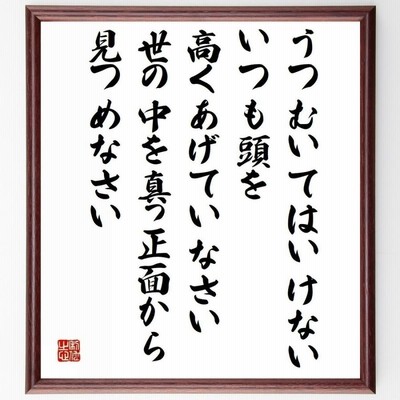 うつむいてはいけない
いつも頭を
高くあげていなさい
世の中を真っ正面から
見つめなさい